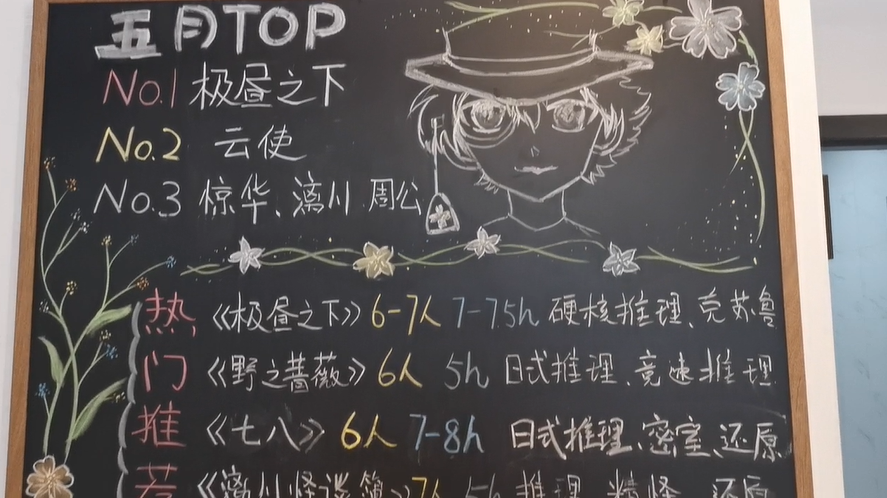 五月TOP
No.1 极昼之下
No.2 云使
No.3 惊华、漓川 周公
热门推荐
《极昼之下》 6-7人 7-7.5h 硬核推理、克苏鲁
《野之蔷薇》 6人 5h 日式推理、竞速推理
《七八》 6人 7-8h 日式推理、密室、还原
《漓川怪谈簿》 7人 5h 推理、精怪、还原